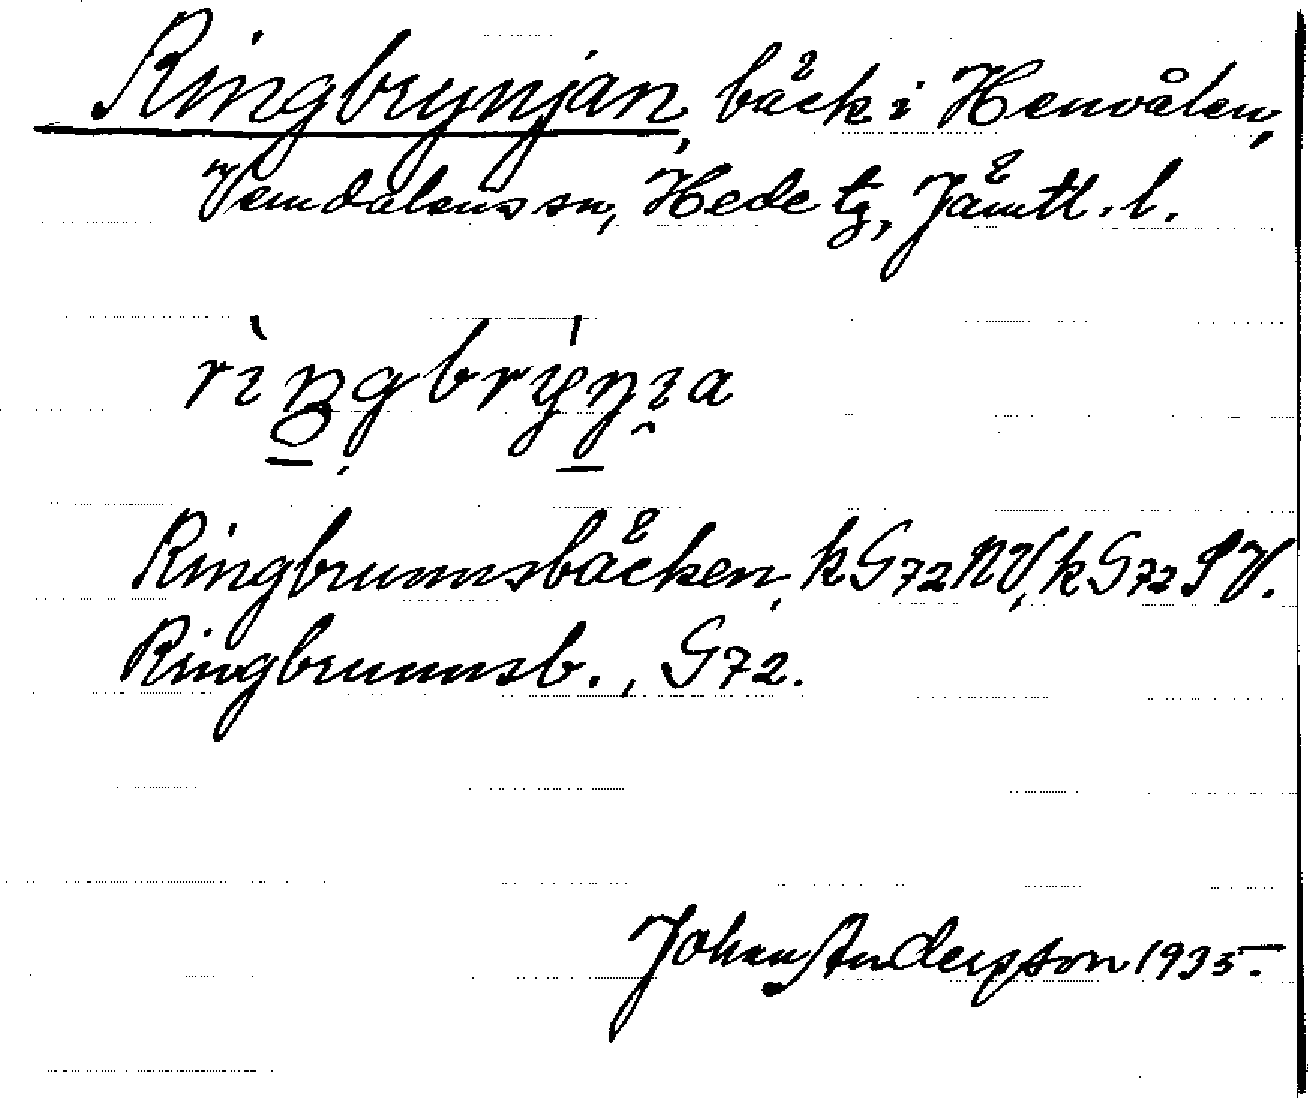 Ringbrynjan, bäck i Henvålen,
Vemdalens sn, Hede tg, Jämtl. l.
rìŋgbrýnia
Ringbrunnsbäcken, kG72NV, kG72SV.
Ringbrunnsb., G72.
Johan Anderson 1935.